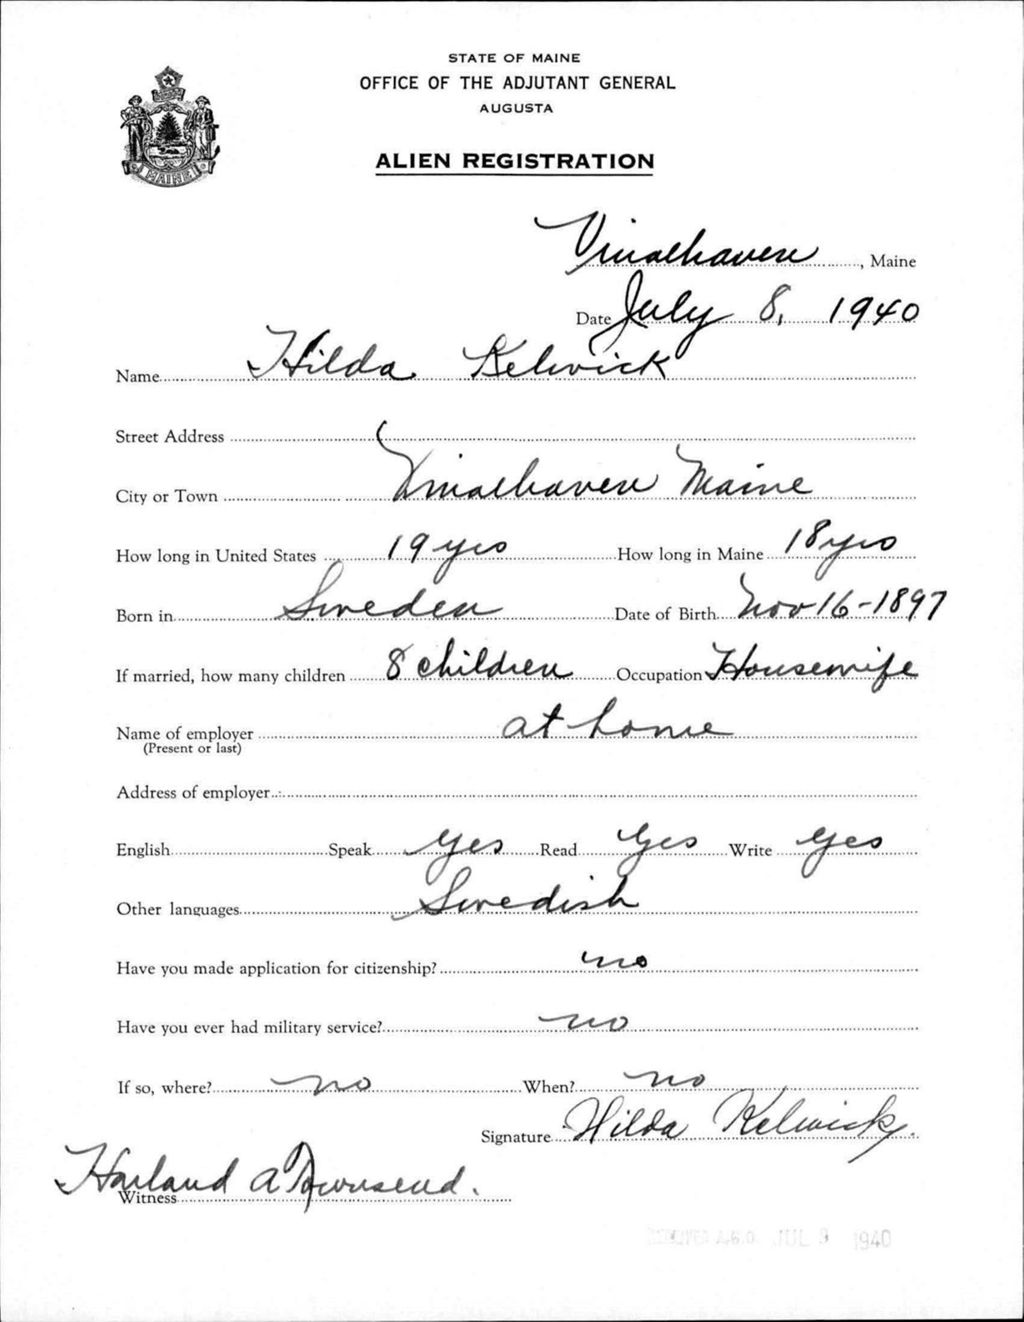 STATE OF MAINE
OFFICE OF THE ADJUTANT GENERAL
AUGUSTA
ALIEN REGISTRATION
MAINE
Vinalhaven, Maine
Date July 8, 1940
Name Hilda Kelwick
Street Address
City or Town Vinalhaven Maine
How long in United States 19 yrs How long in Maine 18 yrs
Born in Sweden Date of Birth Nov 16-1897
If married, how many children 8 children Occupation Housewife
Name of employer at home
(Present or last)
Address of employer
English Speak Yes Read Yes Write Yes
Other languages Swedish
Have you made application for citizenship? no
Have you ever had military service? no
If so, where? no When? no
Signature Hilda Kelwick.
Harland A Townsend.
Witness
A.G.O. JUL 9 1940